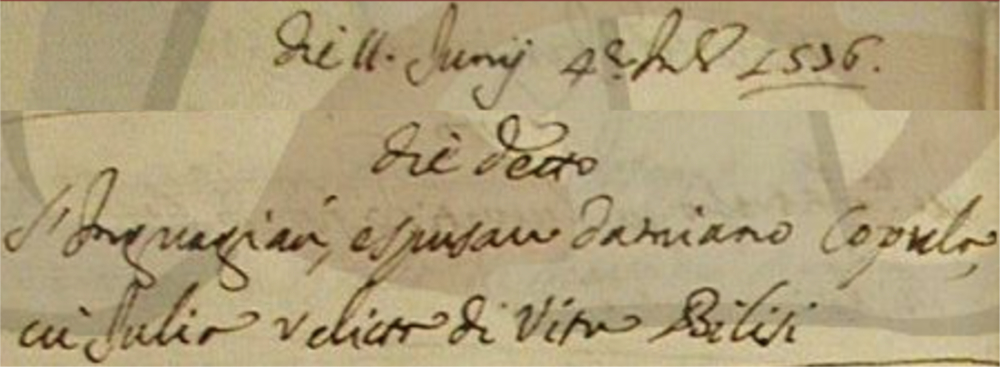 Die 11. Junij 4e Ind 1536.
die detto
S'Inguagiau, e spusau Damiano Copula,
cu Julia relicta di Vitu Bilisi